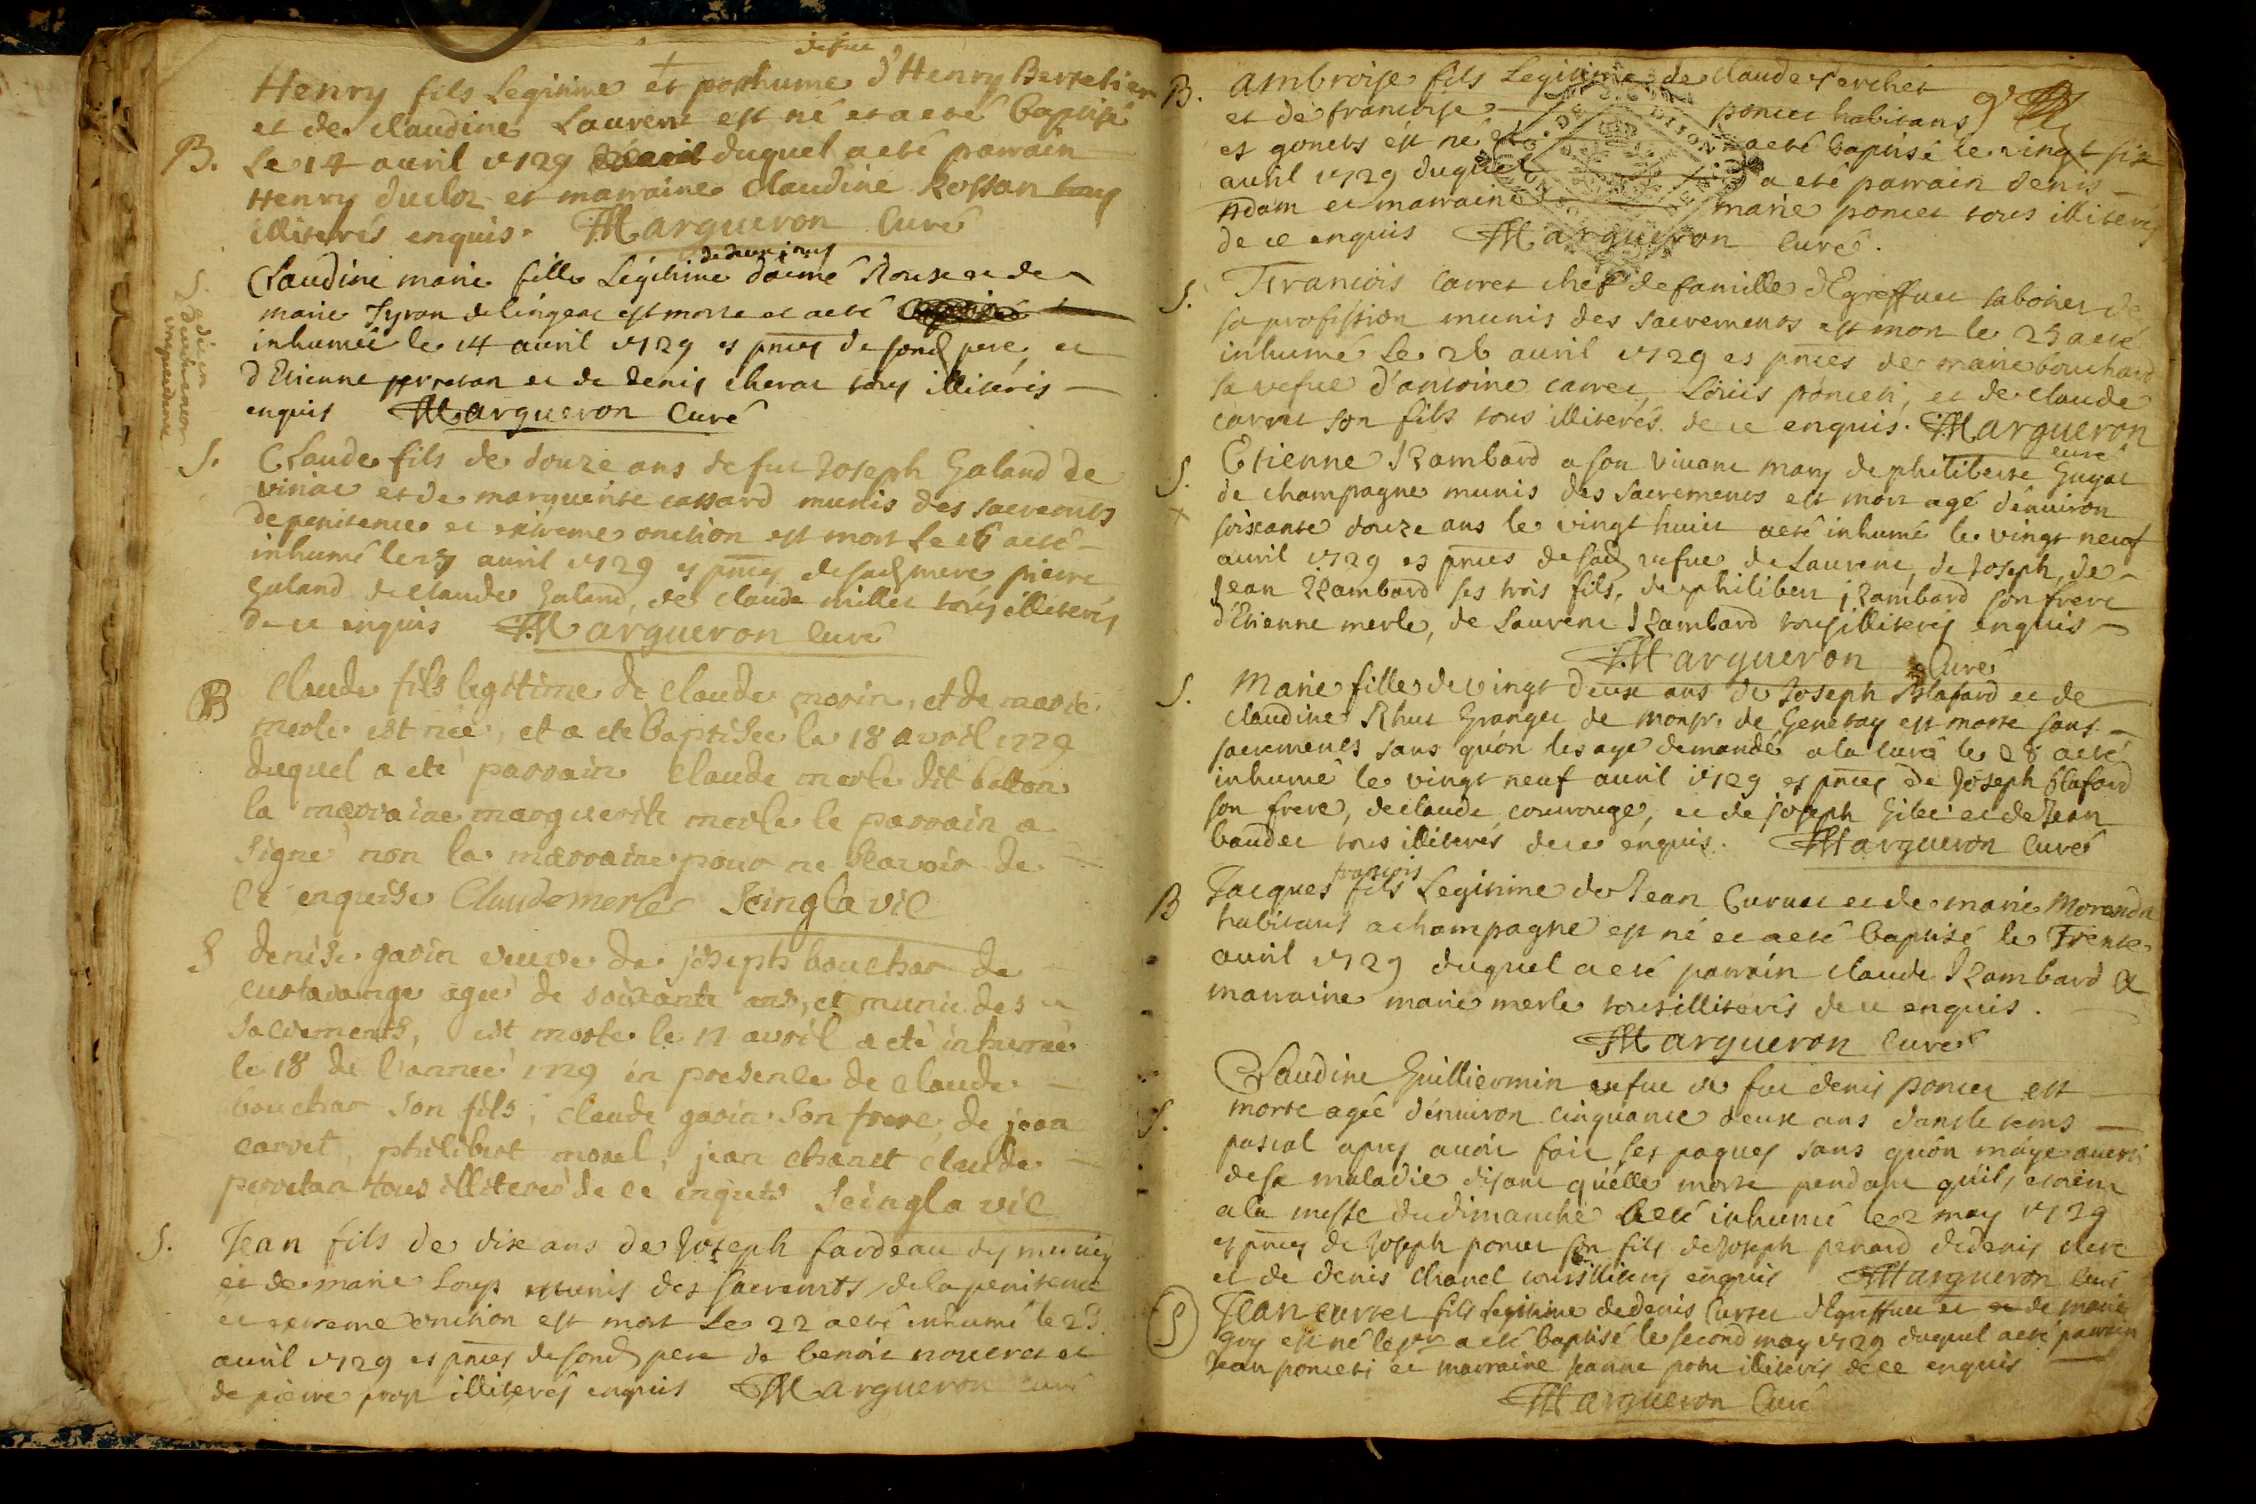 defuc
Henry fils Legitime et posthume d'Henry Bertelier
et de claudine Laurent est né et a eté baptisé
B. Le 14 avril 1729 duquel a eté parrain
Henry duclos et marraine Claudine Rossan tous
illiterés enquis. Margueron Curé
de deux jours
Claudine marie fille Légitime daimé Roux et de
marie Tyran de lingeac est morte et a eté
inhumée le 14 avril 1729 es pnces de sond pere, et
d'Etienne perretan et de denis cherac tous illiterés
enquis Margueron Curé
S. Claude fils de douze ans de fut Joseph Galand de
vinac et de marguerite cassard munis des sacremts
de penitence et extreme onction est mort Le 16 a eté
inhumé le 17 avril 1729 es pnces de sad mere pierre
Galand de claude Galand, de claude millet tous illiterés
de ce enquis Margueron Curé
B Claude fils legitime de claude morin, et de marie
merle est née, et a eté baptisée le 18 avril 1729
duquel a eté parrain claude merle dit batton
la marraine marguerite merle le parrain a
signé non la marraine pour ne scavoir de
ce enquise Claude merle Seingla vic
S denise gavin veuve de joseph bouchar de
custavange agée de soixante ans, et munie des
sacrements, est morte le 17 avril a eté inhumée
le 18 de l'année 1729 en presence de claude
bouchar son fils, claude gavin son frere, de jean
carret, philibert morel, jean chanet claude
perretan tous illiterés de ce enquis Seingla vic
S. Jean fils de dix ans de Joseph fardeau des
et de marie Loup munis des sacremts de la penitence
et extreme onction est mort Le 22 a eté inhumé le 23
avril 1729 es pnces de sond pere de benoit noueret et
de pierre prop illiterés enquis Margueron Curé
B. Ambroise fils Legitime de claude Perchet
et de francoise poncet habitans
es gonets est né et a eté baptisé le vingt six
avril 1729 duquel a eté parrain denis
Adam et marraine marie poncet tous illiterés
de ce enquis Margueron Curé.
S. Francois Carret chef de famille d'Egreffuet laboier de
sa profission munis des sacrements est mort le 25 a eté
inhumé Le 26 avril 1729 es pnces de marie bouchard
sa vefue d'antoine carret, Loüis poncet, et de claude
carret son fils tous illiterés de ce enquis. Margueron
curé
S. Etienne Rambard a son vivant mary de philiberte Guyat
de champagne munis des sacrements est mort agé d'environ
soixante douze ans le vingt huit a eté inhumé le vingt neuf
avril 1729 es pnces de sad vefue de Laurent, de Joseph, de
Jean Rambard ses trois fils, de philibert Rambard son frere
d'Etienne merle, de Laurent Rambard tous illiterés enquis
Margueron Curé
S. Marie fille de vingt deux ans de Joseph Blafard et de
claudine Rhut Granger de monsr. de Genetay est morte sans
sacrements sans qu'on les aye demandé a la cure le 28 a eté
inhumé le vingt neuf avril 1729 es pnces de Joseph blafard
son frere, de claude couvrouge, et de joseph Gilet et de Jean
baudet tous illiterés de ce enquis. Margueron Curé
francois
B Jacques fils Legitime de Jean Curvet et de marie Morandat
habitans a champagne est né et a eté baptisé le Trente
avril 1729 duquel a eté parrain claude Rambard &
marraine marie merle tous illiterés de ce enquis.
Margueron Curé
Claudine Guilliermin vefue de fut denis poncet est
S. morte agée d'environ cinquante deux ans dans le tems
pascal apres avoir fait ses paques sans qu'on m'aye averti
de sa maladie disant qu'elle morte pendant qu'ils etoient
a la messe du dimanche a eté inhumé le 2 may 1729
es pnces de Joseph poncet son fils de Joseph penard de denis
et de denis Chanel tous illiterés enquis Margueron Curé
Jean curtet fils Legitime de denis Curtet d'Egreffuet et de marie
guy est né le per a eté baptisé le second may 1729 duquel a eté parrain
Jean poncet et marraine Jeanne illiterés de ce enquis
Margueron Curé